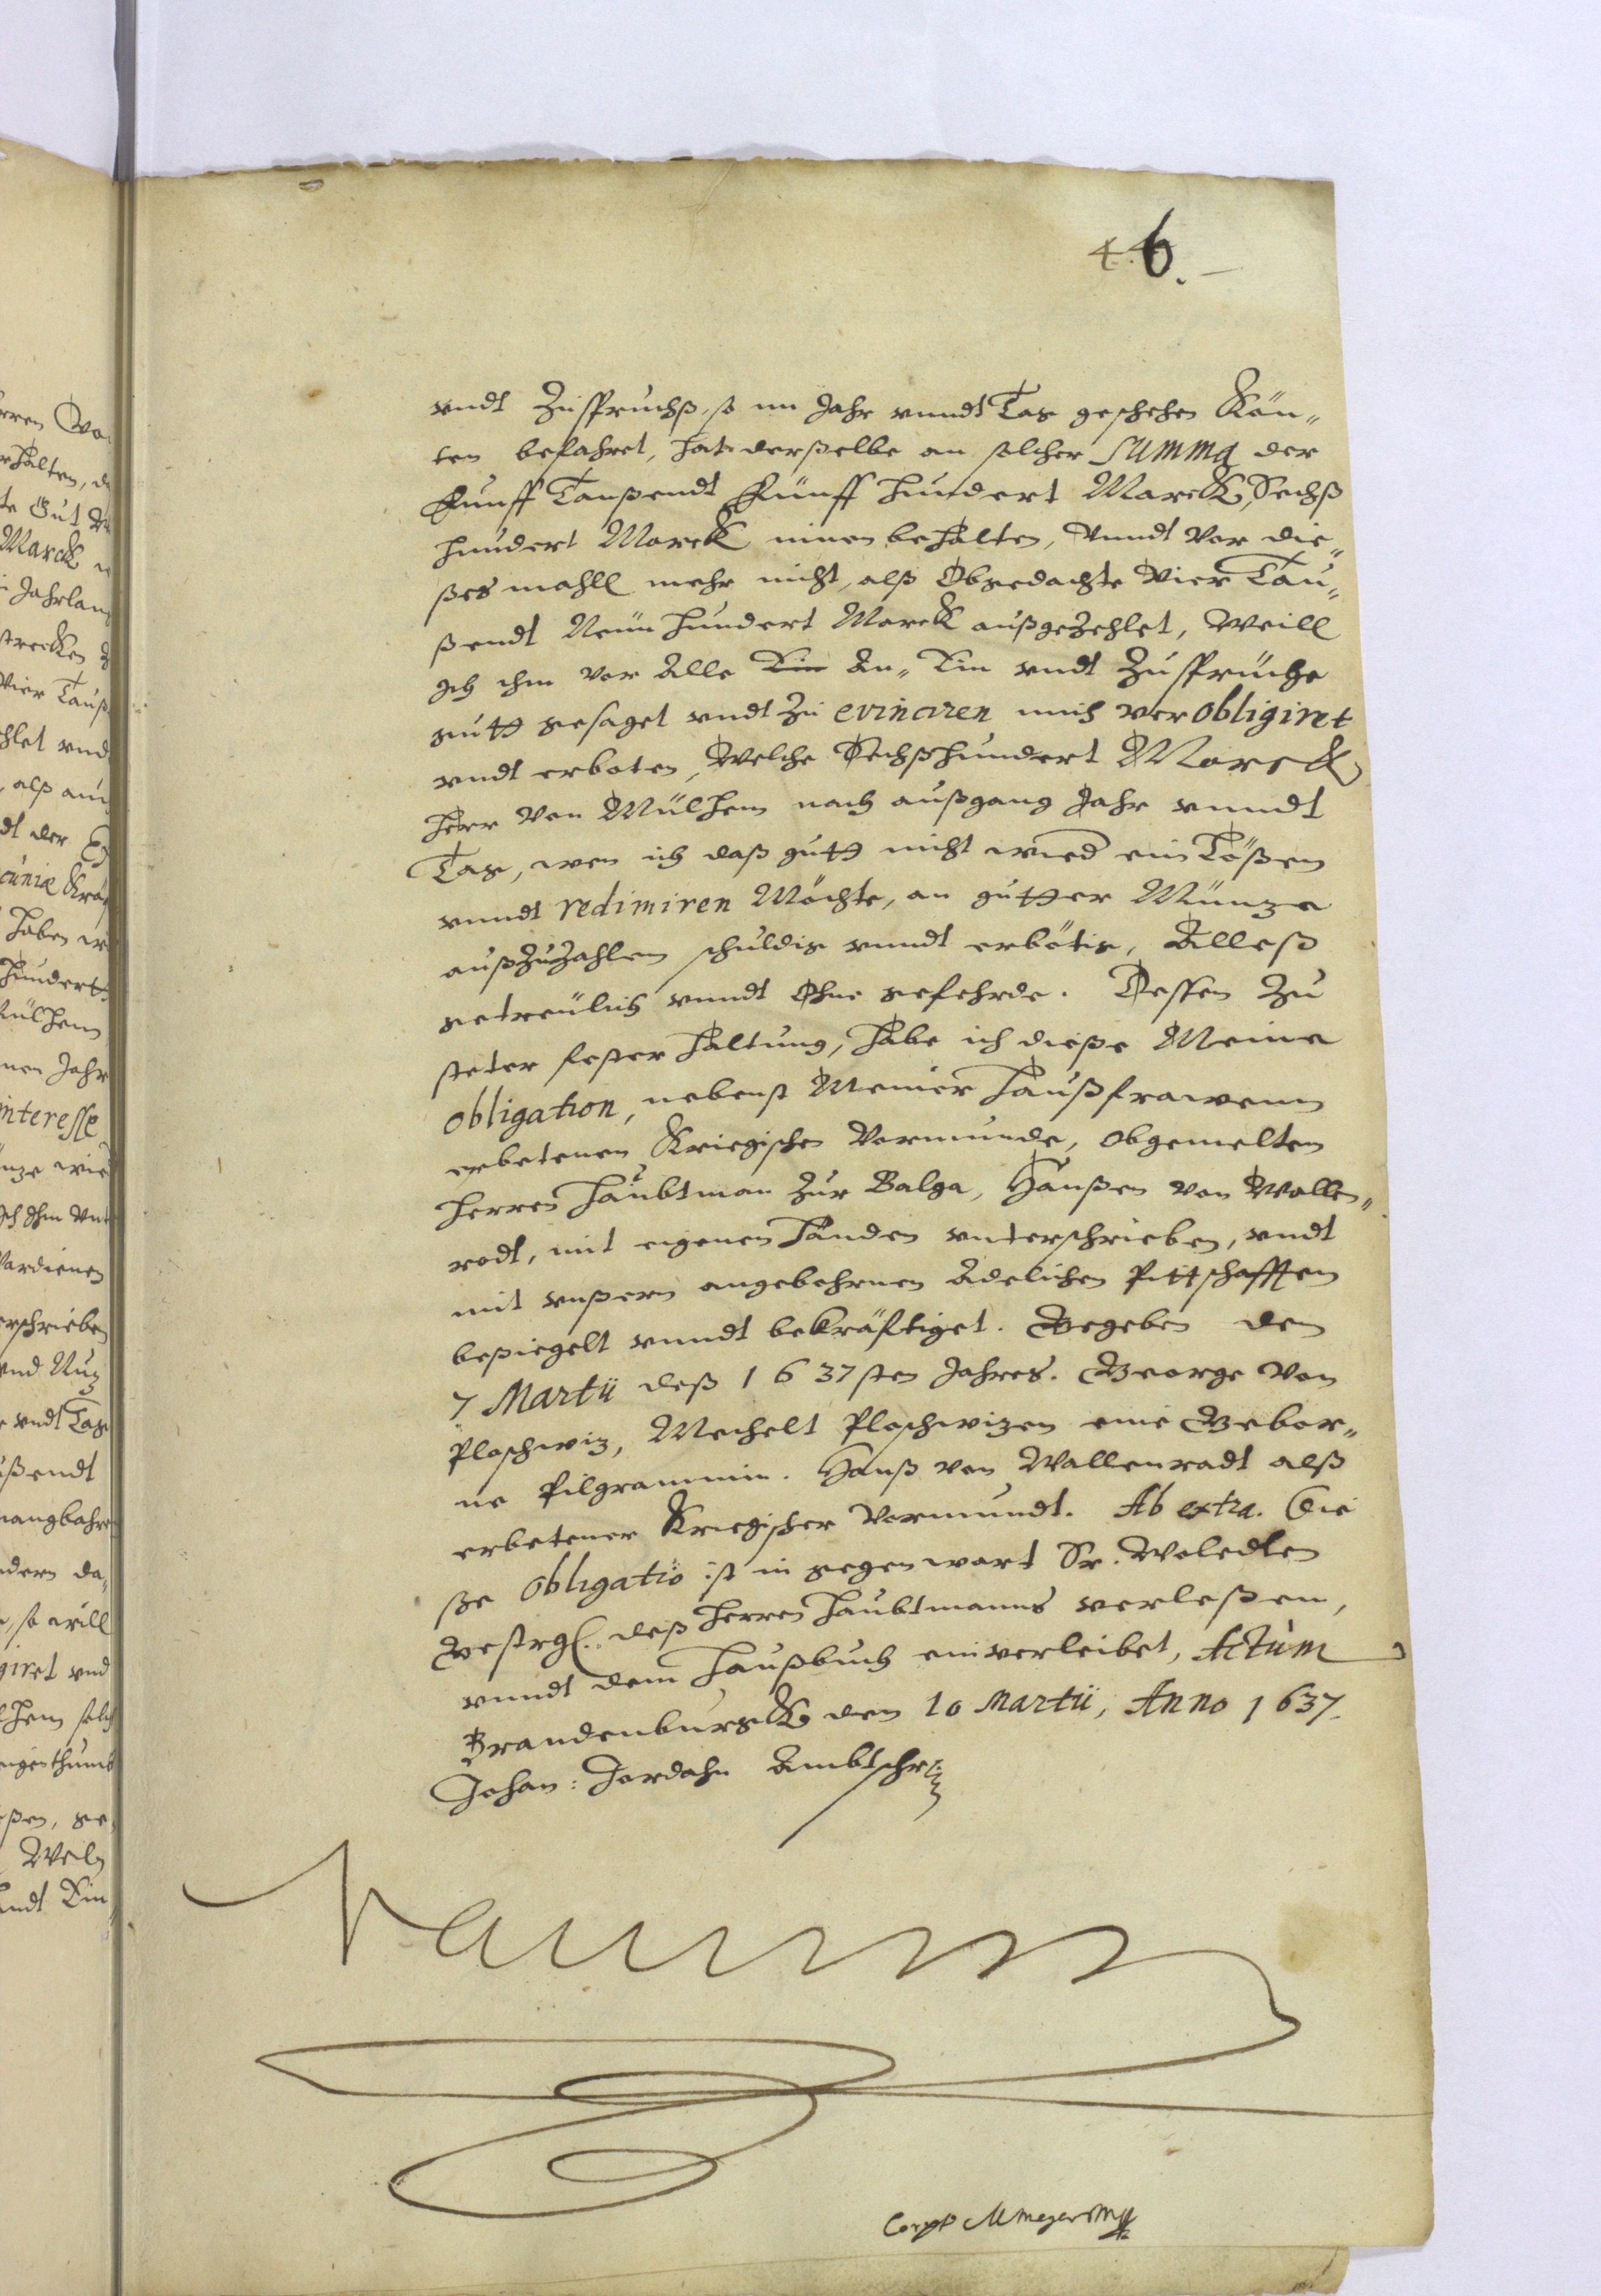 4.6.
vndt Zuspruchß, so inn Jahr vnndt Tag geschehen Kön„
ten befahret, hat derßelbe an solcher Summa der
Funff Taußendt Fünff hundert Marck, Sechß
hundert Marck innen behalten, vnndt vor die„
ßes mahll mehr nicht, alß Obgedachte Vier Tau„
ßendt Neun hundert Marck außgezehlet, Weill
Ich ihm vor Alle Ein An„ Ein vndt Zusprüche
gutt gesaget vndt Zu evinciren mich verobligiret
vndt erboten, Welche Sechßhundert Marck
Herr von Mülhem nach außgang Jahr vnndt
Tag, wen ich daß gutt nicht wied einLößen
vnndt redimiren Möchte, an gutter Müntze
außzuzahlen schuldig vnndt erbötig, Alleß
getreulich vnndt Ohne gefehrde. Dessen Zu
steter fester haltung, habe ich dieße Meine
obligation, nebenst Meiner Haußfrawenn
erbetenen Kriegischen Vormunde, obgemelten
Herren Haubtman Zur Balga, Hanßen von Wallen„
rodt, mit eigenen Händen vnterschrieben, vndt
mit vnßern angebohrnen Adelichen Pittschafften
beßiegelt vnndt bekräftiget. Gegeben den
7 Martii deß 1637sten Jahres. George von
Ploschwiz, Mechelt Ploschwizen eine Gebor„
ne Pilgrammin. Hanß von Wallenradt alß
erbetener Kriegischer Vormundt. Ab extra. Die
ße Obligatio ist in gegenwart Sr. Woledlen
Gestrgl. deß Herren Haubtmanns verleßen,
vnndt dem Haußbuch einverleibet, Actum
Brandenburgk den 10 Martii, Anno 1637.
Johan: Jordahn Ambtschr: